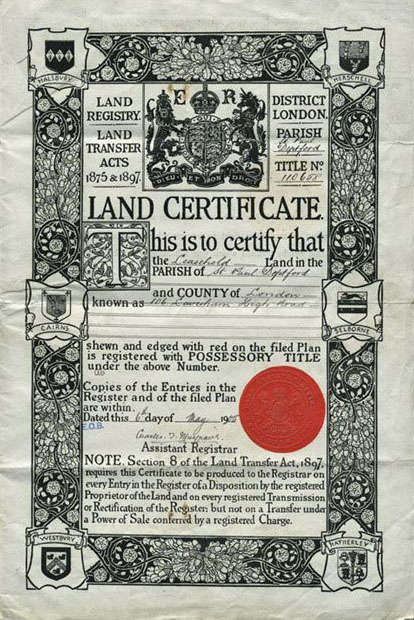 HALSBURY
HERSCHELL
LAND REGISTRY.
LAND TRANSFER ACTS 1875 & 1897.
E R
DIEU ET MON DROIT
DISTRICT LONDON.
PARISH
Deptford
TITLE No
110658
LAND CERTIFICATE.
This is to certify that
the Leasehold Land in the
PARISH of St Paul Deptford
and COUNTY of London
known as 106 Lewisham High Road
CAIRNS
SELBORNE
shewn and edged with red on the filed Plan
is registered with POSSESSORY TITLE
under the above Number.
Copies of the Entries in the
Register and of the filed Plan
are within.
Dated this 6th day of May 19
E.O.B.
Charles
Assistant Registrar
NOTE. Section 8 of the Land Transfer Act, 1897,
requires this Certificate to be produced to the Registrar on
every Entry in the Register of a Disposition by the registered
Proprietor of the Land and on every registered Transmission
or Rectification of the Register; but not on a Transfer under
a Power of Sale conferred by a registered Charge.
WESTBURY
HATHERLEY